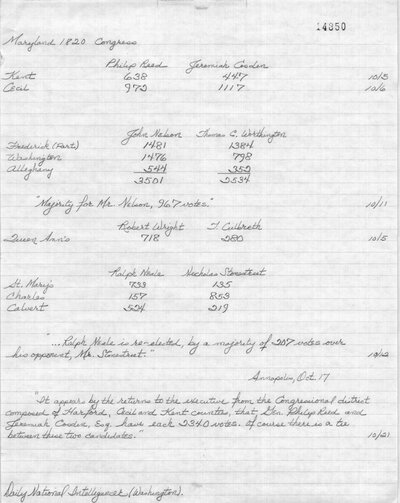 14350
Maryland 1820 Congress
Philip Reed Jeremiah Cosden
Kent 638 447 10/5
Cecil 972 1117 10/6
John Nelson Thomas C. Worthington
Frederick (Part) 1481 1384
Washington 1476 798
Alleghany 544 352
3501 2534
"Majority for Mr. Nelson, 967 votes." 10/11
Robert Wright T. Culbreth
Queen Ann's 718 280 10/5
Ralph Neale Nicholas Stonestreet
St. Mary's 733 135
Charles 157 853
Calvert 524 219
"...Ralph Neale is re-elected, by a majority of 207 votes over
his opponent, Mr. Stonestreet." 10/12
Annapolis, Oct. 17
"It appears by the returns to the executive from the Congressional district
composed of Harford, Cecil and Kent counties, that Gen. Philip Reed and
Jeremiah Cosden, Esq. have each 2340 votes. Of course there is a tie
between these two candidates." 10/21
Daily National Intelligencer (Washington).